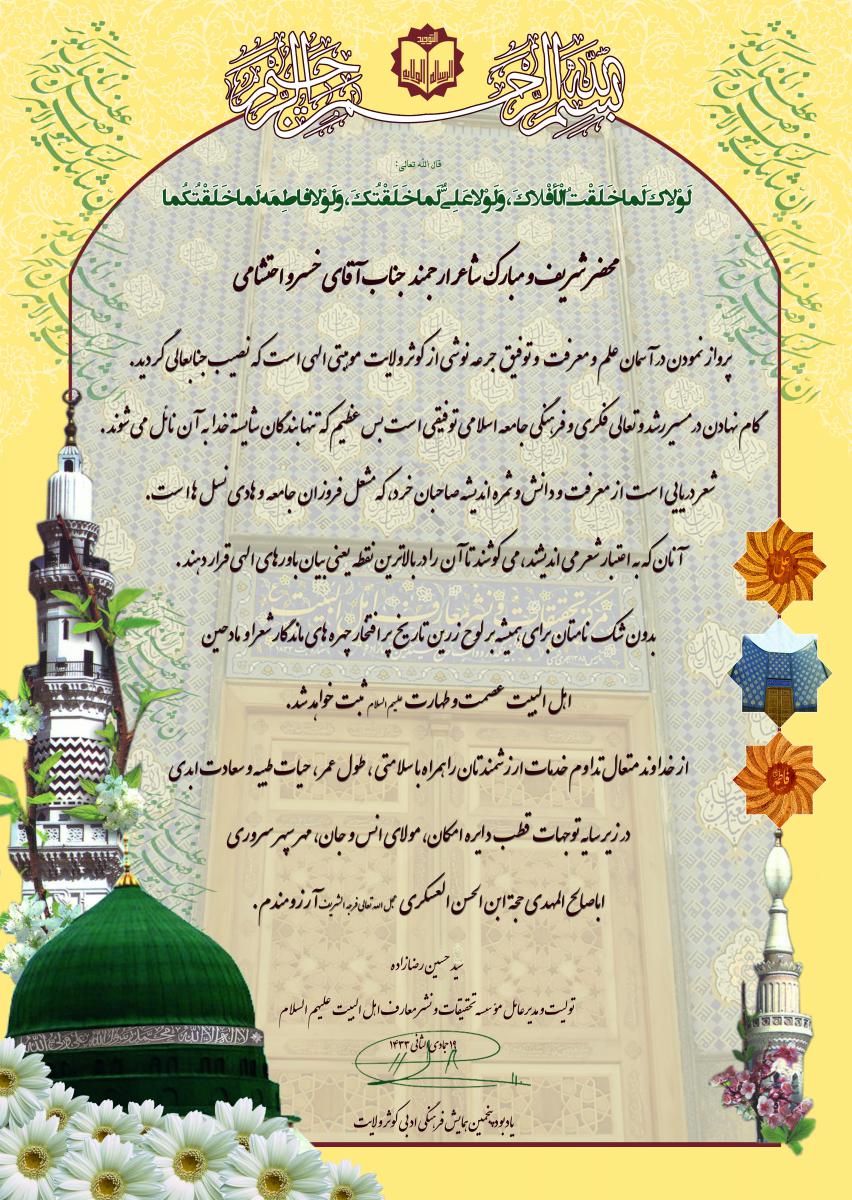 بسم الله الرحمن الرحیم
التوحید
الرساله الولایه
قال الله تعالی:
لَوْلاکَ لَما خَلَقْتُ الْأَفْلاکَ، وَلَوْلا عَلِیٌّ لَما خَلَقْتُکَ، وَلَوْلا فاطِمَه لَما خَلَقْتُکُما
محضر شریف و مبارک شاعر ارجمند جناب آقای خسرو احتشامی
پرواز نمودن در آسمان علم و معرفت و توفیق جرعه نوشی از کوثر ولایت موهبتی الهی است که نصیب جنابعالی گردید.
گام نهادن در مسیر رشد و تعالی فکری و فرهنگی جامعه اسلامی توفیقی است بس عظیم که تنها بندگان شایسته خدا به آن نائل می شوند.
شعر دریایی است از معرفت و دانش و ثمره اندیشه صاحبان خرد، که مشعل فروزان جامعه و هادی نسل هاست.
آنان که به اعتبار شعر می اندیشند، می کوشند تا آن را در بالاترین نقطه یعنی بیان باورهای الهی قرار دهند.
بدون شک نامتان برای همیشه بر لوح زرین تاریخ پر افتخار چهره های ماندگار شعرا و مادحین
اهل البیت عصمت و طهارت علیهم السلام ثبت خواهد شد.
از خداوند متعال تداوم خدمات ارزشمندتان را همراه با سلامتی، طول عمر، حیات طیبه و سعادت ابدی
در زیر سایه توجهات قطب دایره امکان، مولای انس و جان، مهر سپهر سروری
اباصالح المهدی حجة ابن الحسن العسکری عجل الله تعالی فرجه الشریف آرزومندم.
سید حسین رضازاده
تولیت و مدیر عامل مؤسسه تحقیقات و نشر معارف اهل البیت علیهم السلام
۱۹ جمادی الثانی ۱۴۳۳
یادبود پنجمین همایش فرهنگی ادبی کوثر ولایت
علی
فاطمة